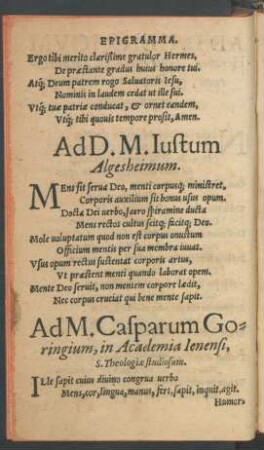 EPIGRAMMA.
Ergo tibi merito clarissime gratulor Hermes,
De præstante gradus huius honore tui.
Atq; Deum patrem rogo Saluatoris Iesu,
Nominis in laudem cedat ut ille sui.
Vtq; tuæ patriæ conducat, & ornet eandem,
Vtq; tibi quouis tempore prosit, Amen.
Ad D. M. Iustum
Algesheimum.
MEns sit serua Deo, menti corpusq; ministret,
Corporis auxilium sit bonus usus opum.
Docta Dei uerbo, sacro spiramine ducta
Mens rectos cultus scitq; facitq; Deo.
Mole uoluptatum quod non est corpus onustum
Officium mentis per sua membra iuuat.
Vsus opum rectus sustentat corporis artus,
Vt præstent menti quando laborat opem.
Mente Deo seruit, non mentem corpore lædit,
Nec corpus cruciat qui bene mente sapit.
Ad M. Casparum Go-
ringium, in Academia Ienensi,
S. Theologiæ studiosum.
ILle sapit cuius diuino congrua uerbo
Mens, cor, lingua, manus, fert, sapit, inquit, agit.
Humor